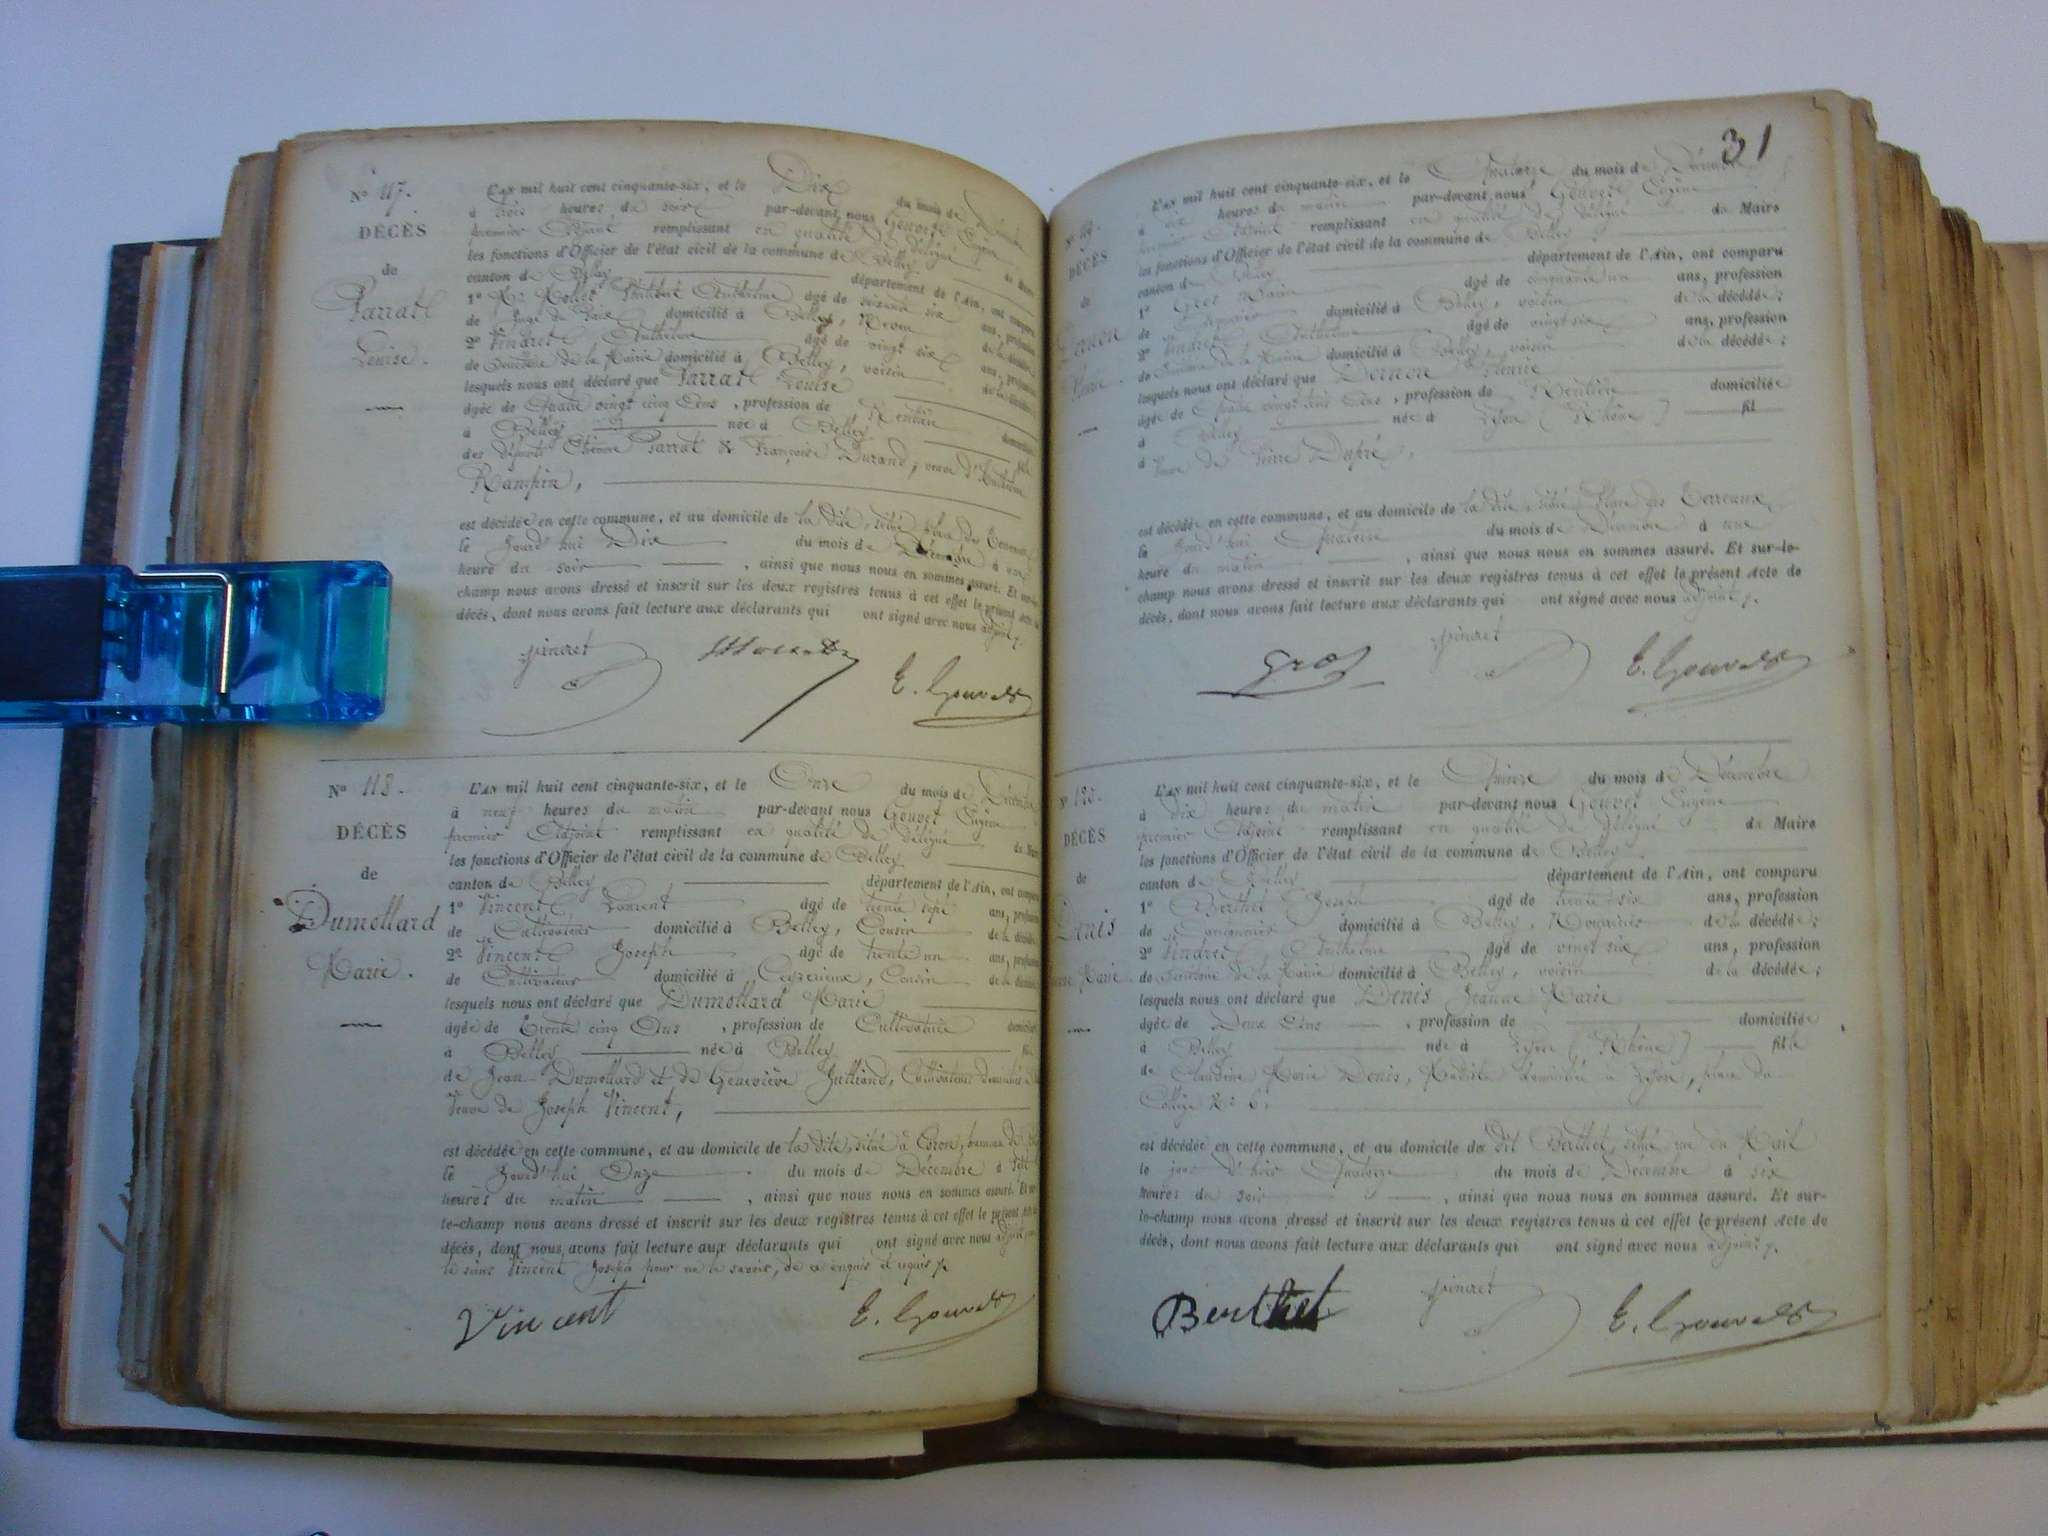 Nº 117.
DÉCÈS
de
Parrat
Louise.
L'AN mil huit cent cinquante-six, et le Dix du mois de Décembre
à trois heures du soir par-devant nous Gouvet Eugène
premier Adjoint remplissant en qualité de Délégué du Maire
les fonctions d'Officier de l'état civil de la commune de Belley
canton de Belley département de l'Ain, ont comparu
1º Anthelme âgé de soixante six ans, profession
de Juge de Paix domicilié à Belley, de la décédée
2º Anthelme âgé de vingt six ans, profession
de de la Mairie domicilié à Belley, voisin de la décédée
lesquels nous ont déclaré que Parrat Louise
âgée de Quatre vingt cinq Ans, profession de Rentière domiciliée
à Belley née à Belley fille
des défunts Etienne Parrat & Françoise Durand, veuve d'Anthelme
Rampin,
est décédée en cette commune, et au domicile de la dite, situé place des Terreaux
le Jourd'hui Dix du mois de Décembre à une
heure du soir, ainsi que nous nous en sommes assuré. Et sur-le-
champ nous avons dressé et inscrit sur les deux registres tenus à cet effet le présent acte de
décès, dont nous avons fait lecture aux déclarants qui ont signé avec nous adjoint
E. Gouvet
Nº 118.
DÉCÈS
de
Dumollard
Marie.
L'AN mil huit cent cinquante-six, et le Onze du mois de Décembre
à neuf heures du matin par-devant nous Gouvet Eugène
premier Adjoint remplissant en qualité de Délégué du Maire
les fonctions d'Officier de l'état civil de la commune de Belley
canton de Belley département de l'Ain, ont comparu
1º Vincent Laurent âgé de trente sept ans, profession
de Cultivateur domicilié à Belley, Cousin de la décédée
2º Vincent Joseph âgé de trente un ans, profession
de Cultivateur domicilié à Ceyzerieux, Cousin de la décédée
lesquels nous ont déclaré que Dumollard Marie
âgée de Trente cinq Ans, profession de Cultivatrice domiciliée
à Belley née à Belley fille
de Jean Dumollard et de Geneviève Julliand, Cultivateurs
Veuve de Joseph Vincent,
est décédée en cette commune, et au domicile de la dite, situé à Coron, hameau de
le Jourd'hui Onze du mois de Décembre à sept
heures du matin, ainsi que nous nous en sommes assuré. Et sur-
le-champ nous avons dressé et inscrit sur les deux registres tenus à cet effet le présent acte de
décès, dont nous avons fait lecture aux déclarants qui ont signé avec nous adjoint
le sieur Vincent Joseph pour ne le savoir, de ce enquis et requis
Vincent
E. Gouvet
31
DÉCÈS
de
L'AN mil huit cent cinquante-six, et le Quatorze du mois de Décembre
à dix heures du matin par-devant nous Gouvet Eugène
premier Adjoint remplissant en qualité de Délégué du Maire
les fonctions d'Officier de l'état civil de la commune de Belley
canton de Belley département de l'Ain, ont comparu
1º Gros âgé de cinquante un ans, profession
de domicilié à Belley, voisin de la décédée;
2º Anthelme âgé de vingt six ans, profession
de de la Mairie domicilié à Belley, voisin de la décédée;
lesquels nous ont déclaré que
âgée de Quatre vingt Ans, profession de Rentière domiciliée
à Belley née à Lyon (Rhône) fil
à Veuve de Pierre Dupré,
est décédée en cette commune, et au domicile de la dite, situé Place des Terreaux
le Jourd'hui Quatorze du mois de Décembre à une
heure du matin, ainsi que nous nous en sommes assuré. Et sur-le-
champ nous avons dressé et inscrit sur les deux registres tenus à cet effet le présent acte de
décès, dont nous avons fait lecture aux déclarants qui ont signé avec nous adjoint
Gros
E. Gouvet
DÉCÈS
de
Denis
L'AN mil huit cent cinquante-six, et le Quinze du mois de Décembre
à dix heures du matin par-devant nous Gouvet Eugène
premier Adjoint remplissant en qualité de Délégué du Maire
les fonctions d'Officier de l'état civil de la commune de Belley
canton de Belley département de l'Ain, ont comparu
1º Berthet Joseph âgé de trente six ans, profession
de domicilié à Belley, de la décédée;
2º Anthelme âgé de vingt six ans, profession
de de la Mairie domicilié à Belley, voisin de la décédée;
lesquels nous ont déclaré que Denis Jeanne Marie
âgée de Deux Ans, profession de domiciliée
à Belley née à Lyon (Rhône) fille
de Claudine Marie Denis, Modiste domiciliée à Lyon, place du
Collège Nº 6.
est décédée en cette commune, et au domicile du dit Berthet, situé rue du Mail
le jour d'hier Quatorze du mois de Décembre à six
heures du soir, ainsi que nous nous en sommes assuré. Et sur-
le-champ nous avons dressé et inscrit sur les deux registres tenus à cet effet le présent acte de
décès, dont nous avons fait lecture aux déclarants qui ont signé avec nous adjoint
Berthet
E. Gouvet